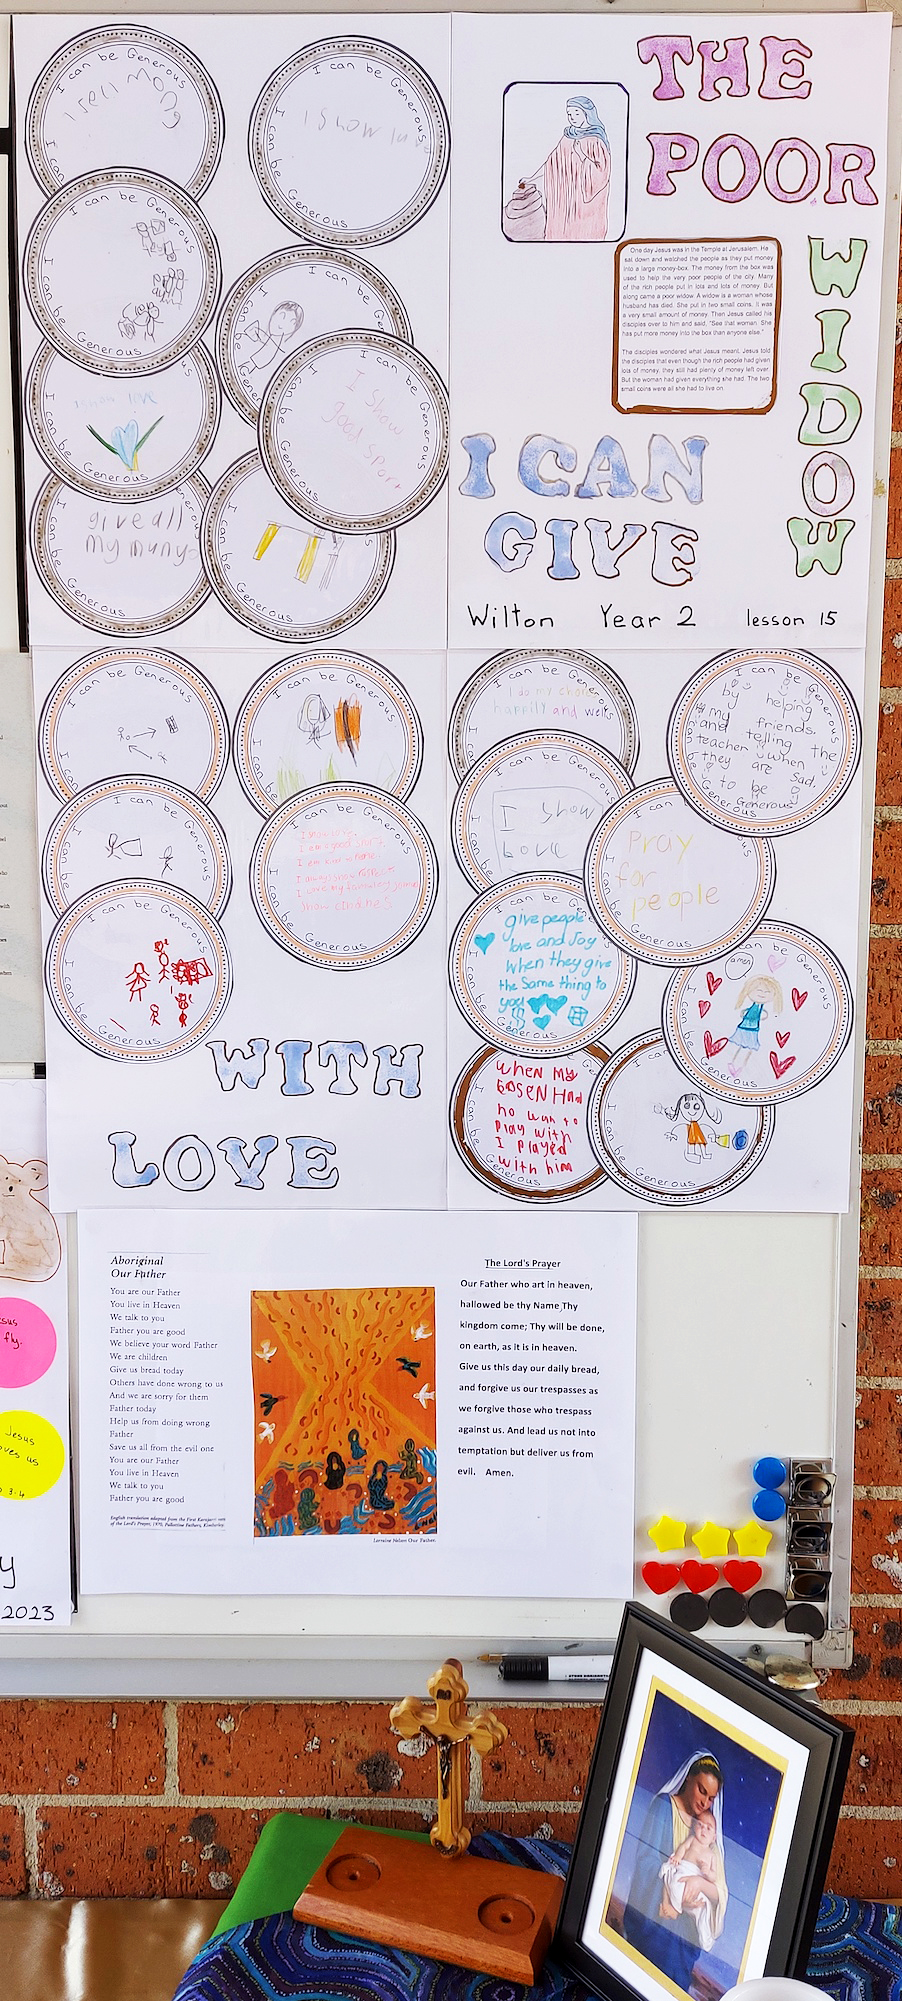 I can be Generous
I can be Generous
I can be Generous
I can be Generous
I can be
Generous
I can be Generous
I can be
Generous
I can be Generous
I show love
I can be
Generous
I Show
good Sport
I can be
Generous
give all
my muny
Generous
I can be
Generous
THE
POOR
WIDOW
One day Jesus was in the Temple at Jerusalem. He
sat down and watched the people as they put money
into a large money-box. The money from the box was
used to help the very poor people of the city. Many
of the rich people put in lots and lots of money. But
along came a poor widow. A widow is a woman whose
husband has died. She put in two small coins. It was
a very small amount of money. Then Jesus called his
disciples over to him and said, "See that woman. She
has put more money into the box than anyone else."
The disciples wondered what Jesus meant. Jesus told
the disciples that even though the rich people had given
lots of money, they still had plenty of money left over.
But the woman had given everything she had. The two
small coins were all she had to live on.
I CAN
GIVE
Wilton Year 2 lesson 15
I can be Generous
I can be Generous
I can be Generous
I can be Generous
I can be Generous
I can be Generous
Generous
WITH
LOVE
I do my
happily and
I show
Love
I can be Generous
by helping
my friends.
and telling the
teacher when
they are Sad.
to be
Generous
Pray
for
people
Generous
give people
love and Joy
when they give
the Same thing to
you
Generous
can be Generous
amen
Generous
when my
no
play with
I played
with him
I can be
Generous
I can be
Generous
Aboriginal
Our Father
You are our Father
You live in Heaven
We talk to you
Father you are good
We believe your word Father
We are children
Give us bread today
Others have done wrong to us
And we are sorry for them
Father today
Help us from doing wrong
Father
Save us all from the evil one
You are our Father
You live in Heaven
We talk to you
Father you are good
Lorraine Nelson Our Father.
The Lord's Prayer
Our Father who art in heaven,
hallowed be thy Name,Thy
kingdom come; Thy will be done,
on earth, as it is in heaven.
Give us this day our daily bread,
and forgive us our trespasses as
we forgive those who trespass
against us. And lead us not into
temptation but deliver us from
evil. Amen.
fly.
Jesus
us
2023